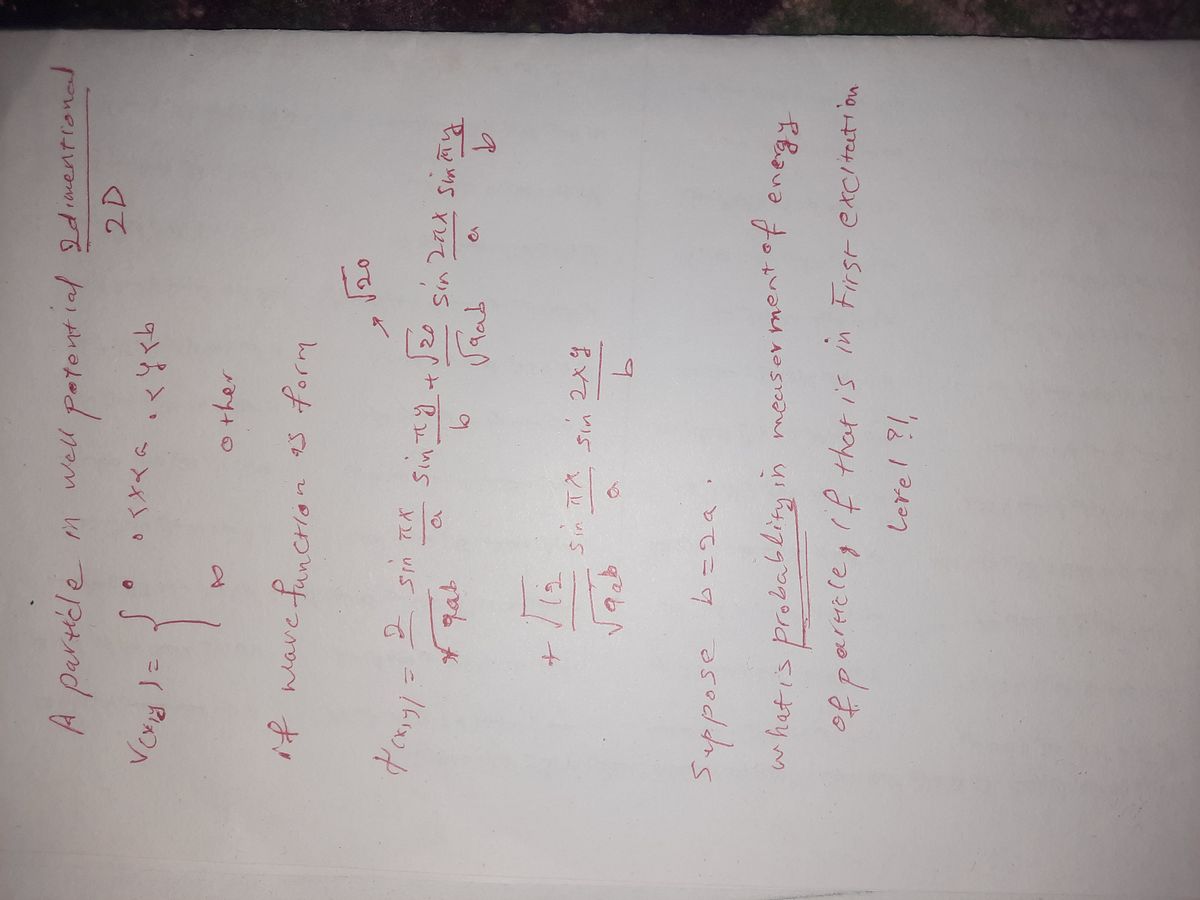 A particle in well potential 2dimentional
2D
V(x,y) = { 0 0<x<a 0<y<b
∞ other
if wave function as form
√20
ψ(x,y) = 2/√9ab sin πx/a sin πy/b + √20/√9ab sin 2πx/a sin πy/b
+ √12/√9ab sin πx/a sin 2πy/b
Suppose b=2a.
what is probablity in measurerment of energy
of particle, if that is in First excitation
Level?!